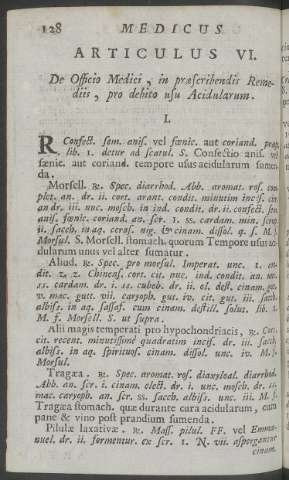 128 MEDICUS
ARTICULUS VI.
De Officio Medici, in præscribendis Reme-
diis, pro debito usu Acidularum.
I.
R Confect. sem. anis. vel fœnic. aut coriand. præp.
lib. 1. detur ad scatul. S. Confectio anis. vel
fœnic. aut coriand. tempore usus acidularum sumen-
da.
Morsell. ℞. Spec. diarrhod. Abb. aromat. ros. com-
plet. an. dr. ii. cort. arant. condit. minutim incis. cin.
an dr. iii. unc. mosch. in ind. condit. dr. ii. confect. sem.
anis. fœnic. coriand. an. scr. 1. ss. cardam. min. scr.
ii. sacch. in aq. ceras. nig. & cinam. dissol. q. s. M. f.
Morsul. S. Morsell. stomach. quorum Tempore usus aci-
dularum unus vel alter sumatur.
Aliud. ℞. Spec. pro morsul. Imperat. unc. 1. en-
dit. z. z. Chineas. cort. cit. nuc. ind. condit. an. unc.
ss. cardam. dr. i. ss. cubeb. dr. ii. el. dest. cinam. gu.
v. mac. gutt. vii. caryoph. gut. iv. cit. gut. iii. sacch.
albiss. in aq. sassaf. cum cinam. destill. solut. lib. 1.
M. f. Morsell. S. ut supra.
Alii magis temperati pro hypochondriacis, ℞. Cort.
cit. recent. minutissimè quadratim incis. dr. iii. sacch.
albiss. in aq. spirituos. cinam. dissol. unc. iv. M. f.
Morsul.
Tragæa. ℞. Spec. aromat. ros. diaxyloal. diarrhod.
Abb. an. scr. i. cinam. elect. dr. i. unc. mosch. dr. ss.
mac. caryoph. an scr. ss. sacch. albiss. unc. iii. M. f.
Tragæa stomach. quæ durante cura acidularum, cum
pane & vino post prandium sumenda.
Pilulæ laxativæ. ℞. Mass. pilul. FF. vel Emma-
nuel. dr. ii. formentur ex scr. 1. N. vii. aspergantur
cinam.